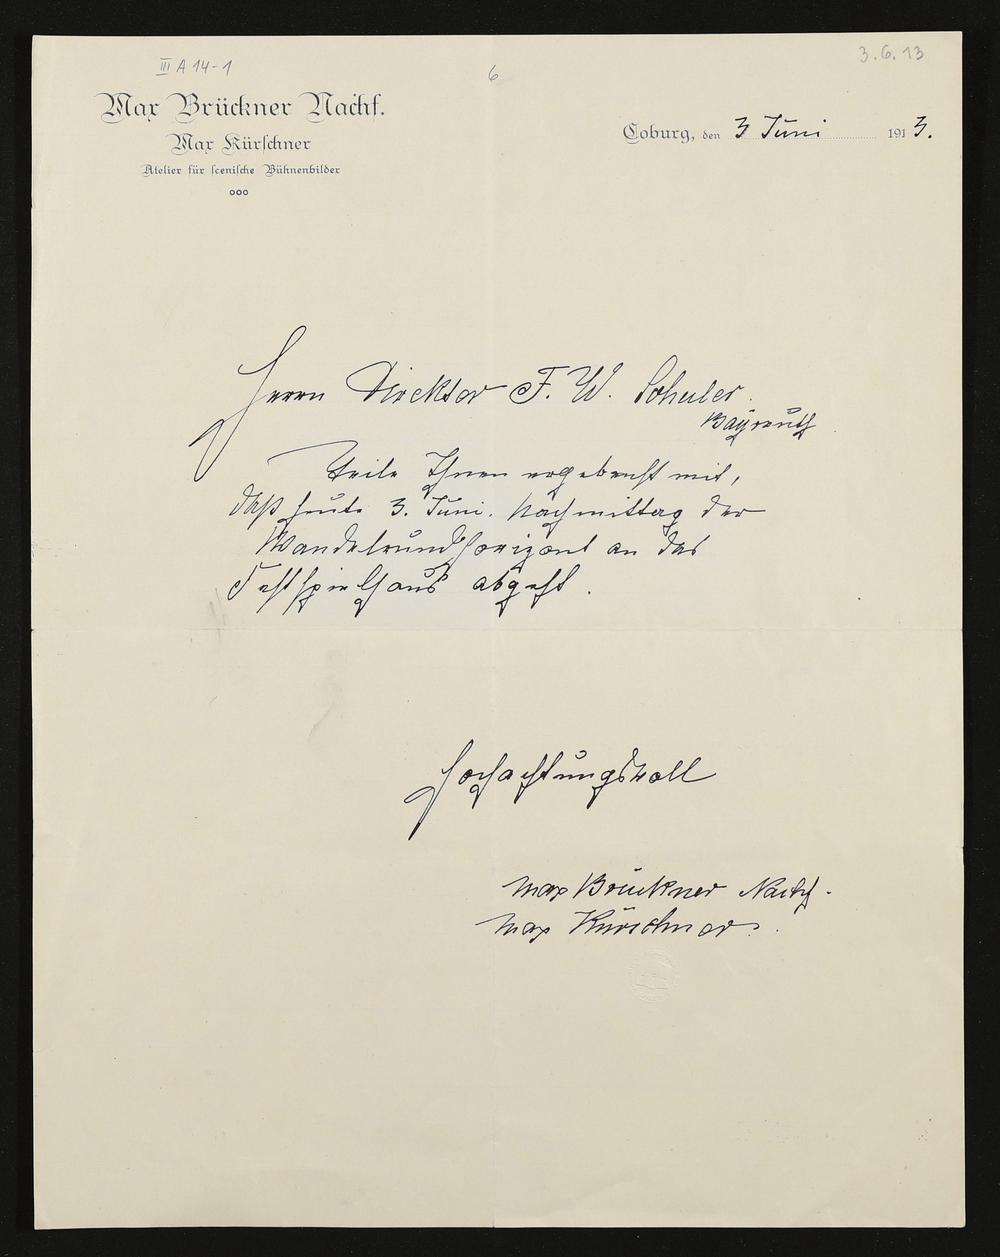 III A 14-1
6
3.6.13
Max Brückner Nachf.
Max Kürschner
Atelier für scenische Bühnenbilder
Coburg, den 3 Juni 1913.
Herrn Direktor F. W. Schuler.
Bayreuth
Teile Ihnen ergebenst mit,
daß heute 3. Juni. Nachmittag der
Wandelrundhorizont an das
Festspielhaus abgeht.
Hochachtungsvoll
Max Brückner Nachf.
Max Kürschner.